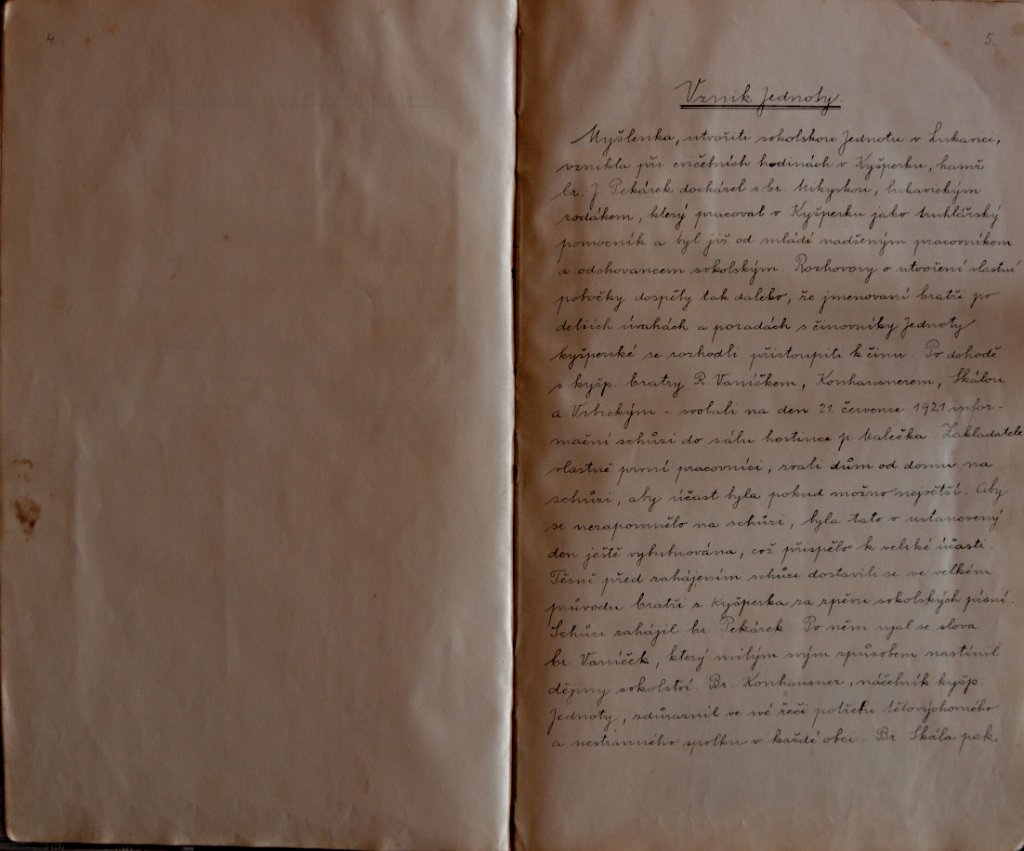 4.
5.
Vznik Jednoty.
Myšlenka, utvořiti sokolskou Jednotu v Lukavici,
vznikla při cvičebních hodinách v Kyšperku, kamž
br. J. Pekárek docházel s br. Mikyskou, lukavickým
rodákem, který pracoval v Kyšperku jako truhlářský
pomocník a byl již od mládí nadšeným pracovníkem
a odchovancem sokolským. Rozhovory o utvoření vlastní
pobočky dospěly tak daleko, že jmenovaní bratři po
delších úvahách a poradách s činovníky Jednoty
kyšperské se rozhodli přistoupiti k činu. Po dohodě
s kyšp. bratry R. Vaníčkem, Konhausnerem, Skálou
a Vrbickým - svolali na den 21. července 1921 infor-
mační schůzi do sálu hostince p. Malečka. Zakladatelé
vlastně první pracovníci, zvali dům od domu na
schůzi, aby účast byla pokud možno největší. Aby
se nezapomnělo na schůzi, byla tato v ustanovený
den ještě vybubnována, což přispělo k veliké účasti.
Těsně před zahájením schůze dostavili se ve velkém
průvodu bratři z Kyšperka za zpěvu sokolských písní.
Schůzi zahájil br. Pekárek. Po něm ujal se slova
br. Vaníček, který milým svým způsobem nastínil
dějiny sokolství. Br. Konhausner, náčelník kyšp.
Jednoty, zdůraznil ve své řeči potřebu tělovýchovného
a nestranného spolku v každé obci. Br. Skála pak